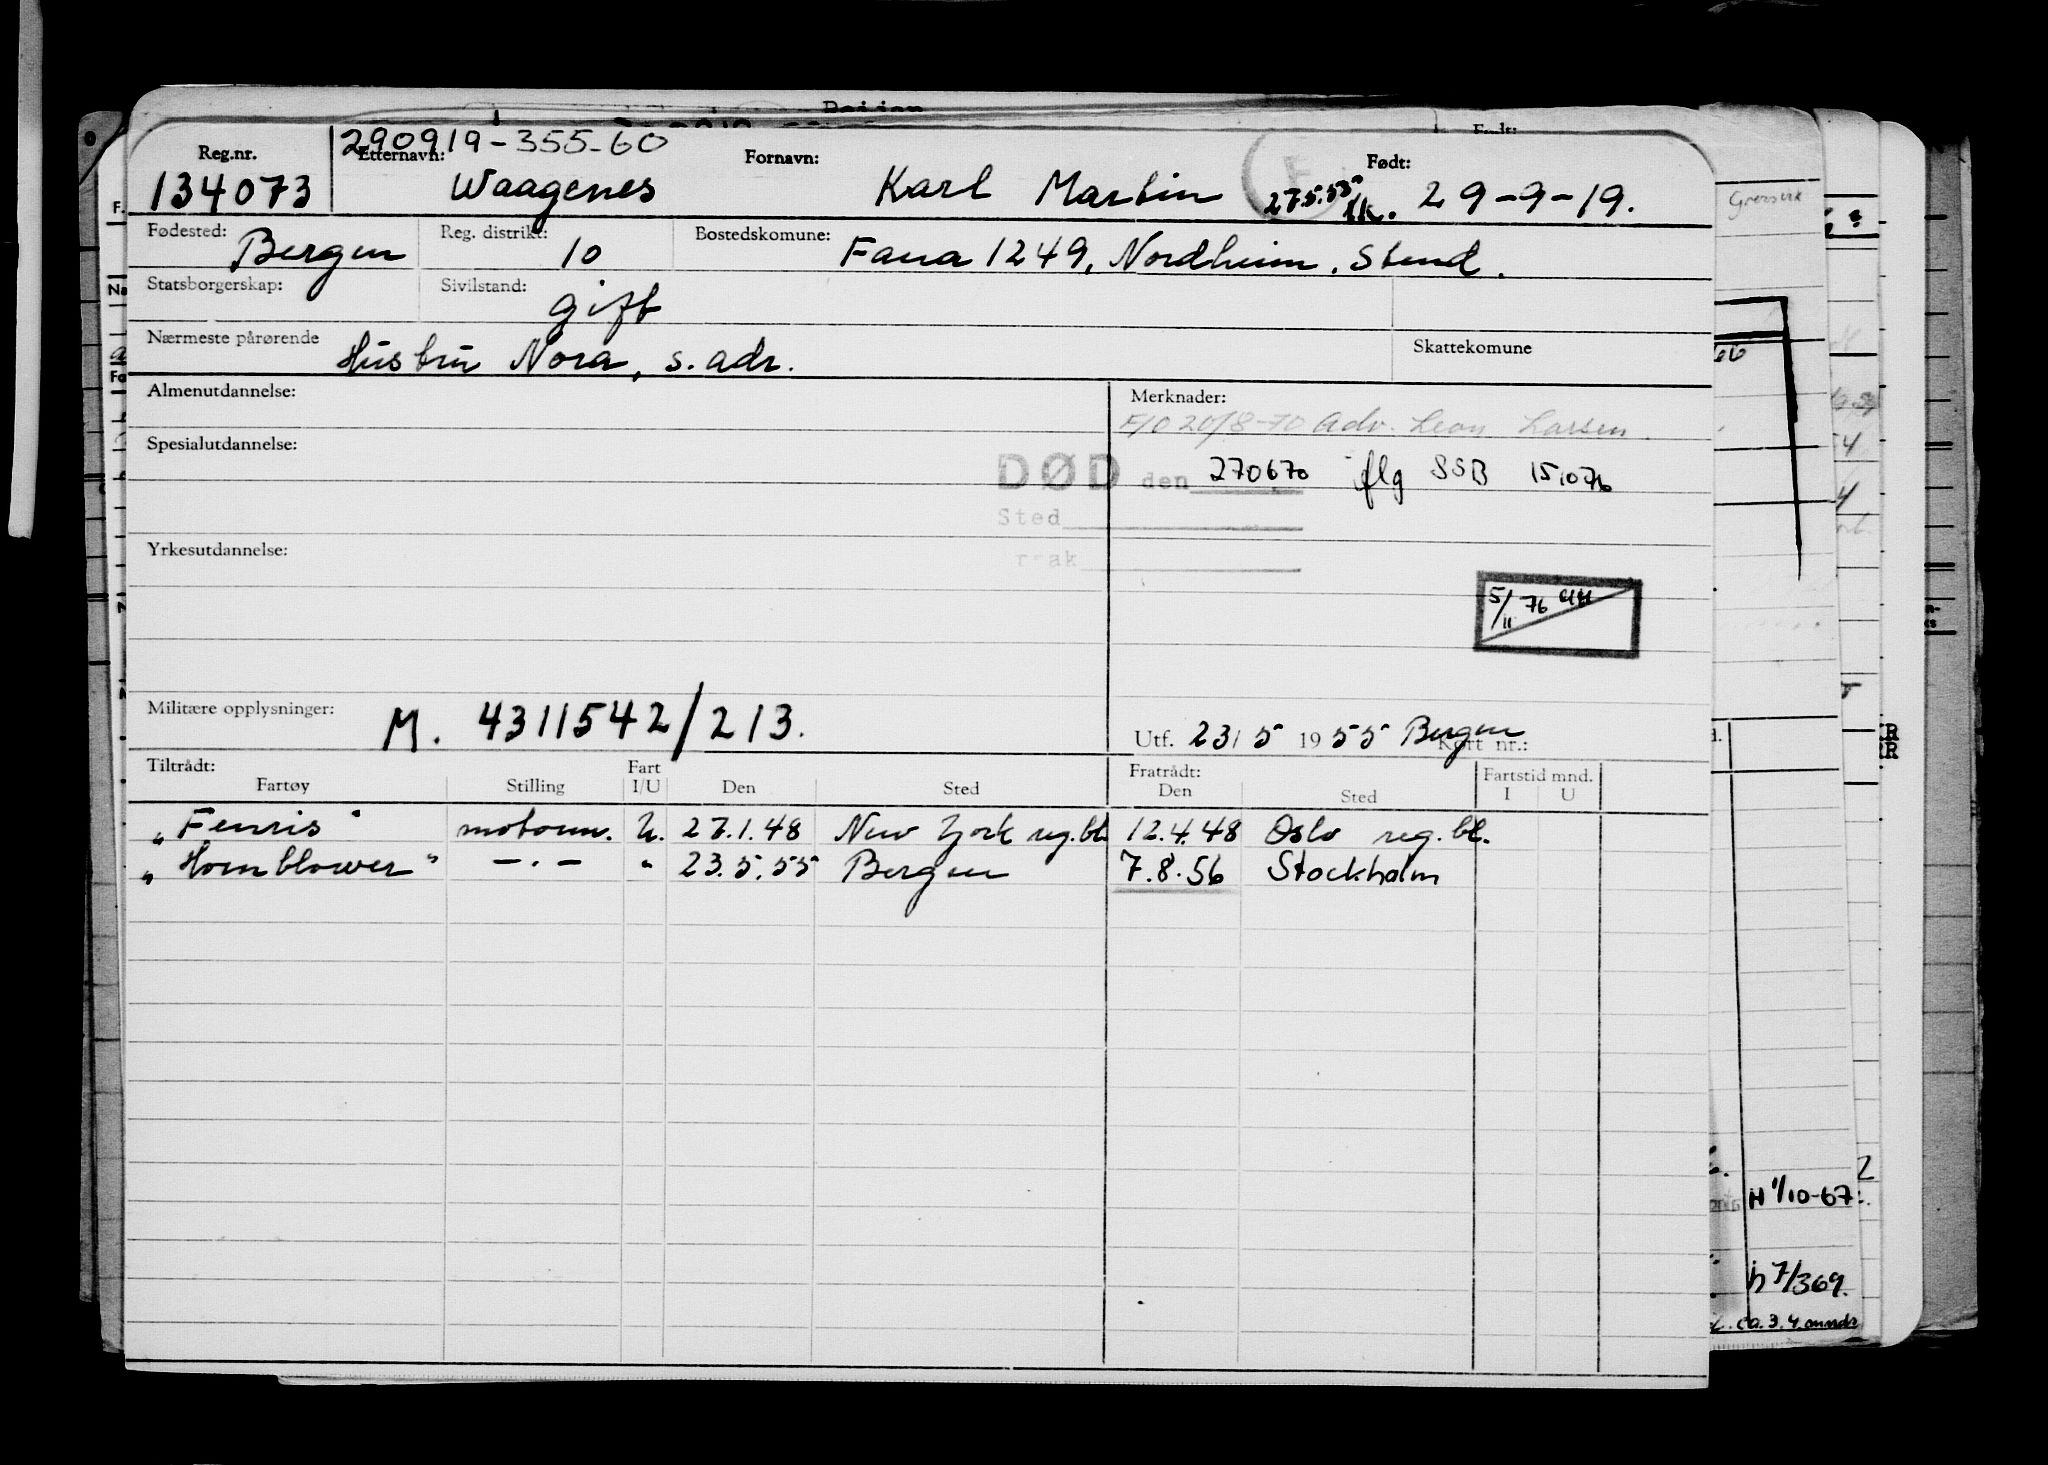 290919-355-60
Reg.nr. Etternavn: Fornavn: Født:
134073 Waagenes Karl Martin 27.5.55 29-9-19.
Fødested: Bergen Reg. distrikt: 10 Bostedskomune: Fana 1249, Nordheim, Stend.
Statsborgerskap: Sivilstand: gift
Nærmeste pårørende Hustru Nora, s. adr. Skattekomune
Almenutdannelse: Merknader:
20/8-70 Adv. Leon Larsen.
Spesialutdannelse:
DØD den 270670 iflg SSB 151076
Sted
Yrkesutdannelse:
5/11 76
Militære opplysninger: M. 4311542/213.
Utf. 23/5 1955 Bergen Kort nr.:
Tiltrådt: Fart Fratrådt: Fartstid mnd.
Fartøy Stilling I/U Den Sted Den Sted I U
"Fenris" motorm. U. 27.1.48 New York reg.bl. 12.4.48 Oslo reg.bl.
"Hornblower" -.- " 23.5.55 Bergen 7.8.56 Stockholm
H 1/10-67.
h 7/369.
ca. 3.4. mndr